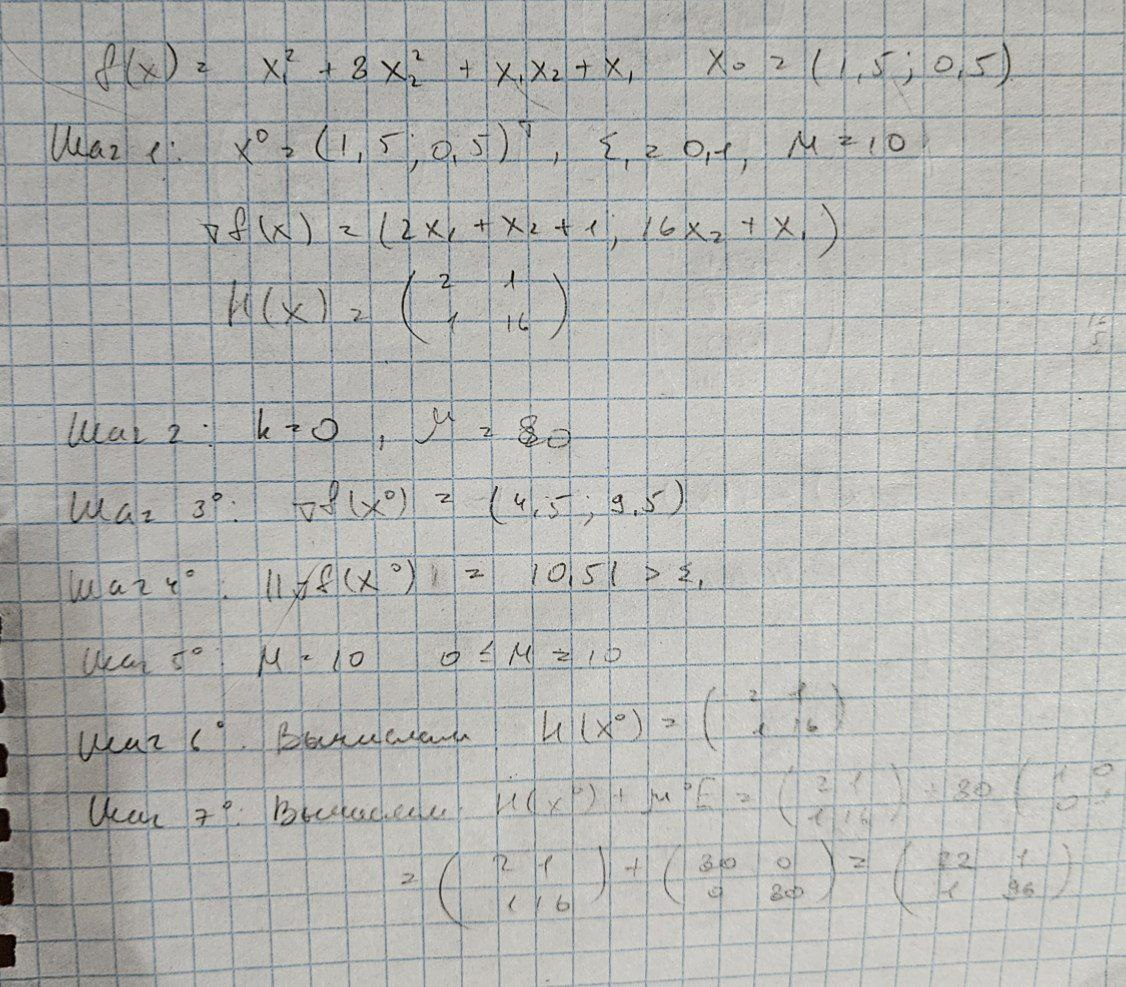 f(x) = x₁² + 8x₂² + x₁x₂ + x₁ x₀ = (1,5; 0,5)
Шаг 1: x⁰ = (1,5; 0,5)ᵀ, ε₁ = 0,1, M = 10
∇f(x) = (2x₁ + x₂ + 1; 16x₂ + x₁)
H(x) = ( 2 1
1 16 )
Шаг 2: k = 0, μ = 80
Шаг 3⁰: ∇f(x⁰) = (4,5; 9,5)
Шаг 4⁰: ||∇f(x⁰)| = 10,51 > ε₁
Шаг 5⁰ M = 10 0 ≤ M = 10
Шаг 6⁰. Вычислим H(x⁰) = ( 2 1
1 16 )
Шаг 7⁰: Вычислим H(x⁰) + μ⁰E = ( 2 1 ) + 80 ( 1 0
1 16 0
= ( 2 1 ) + ( 80 0 ) = ( 82 1 )
1 16 0 80 1 96